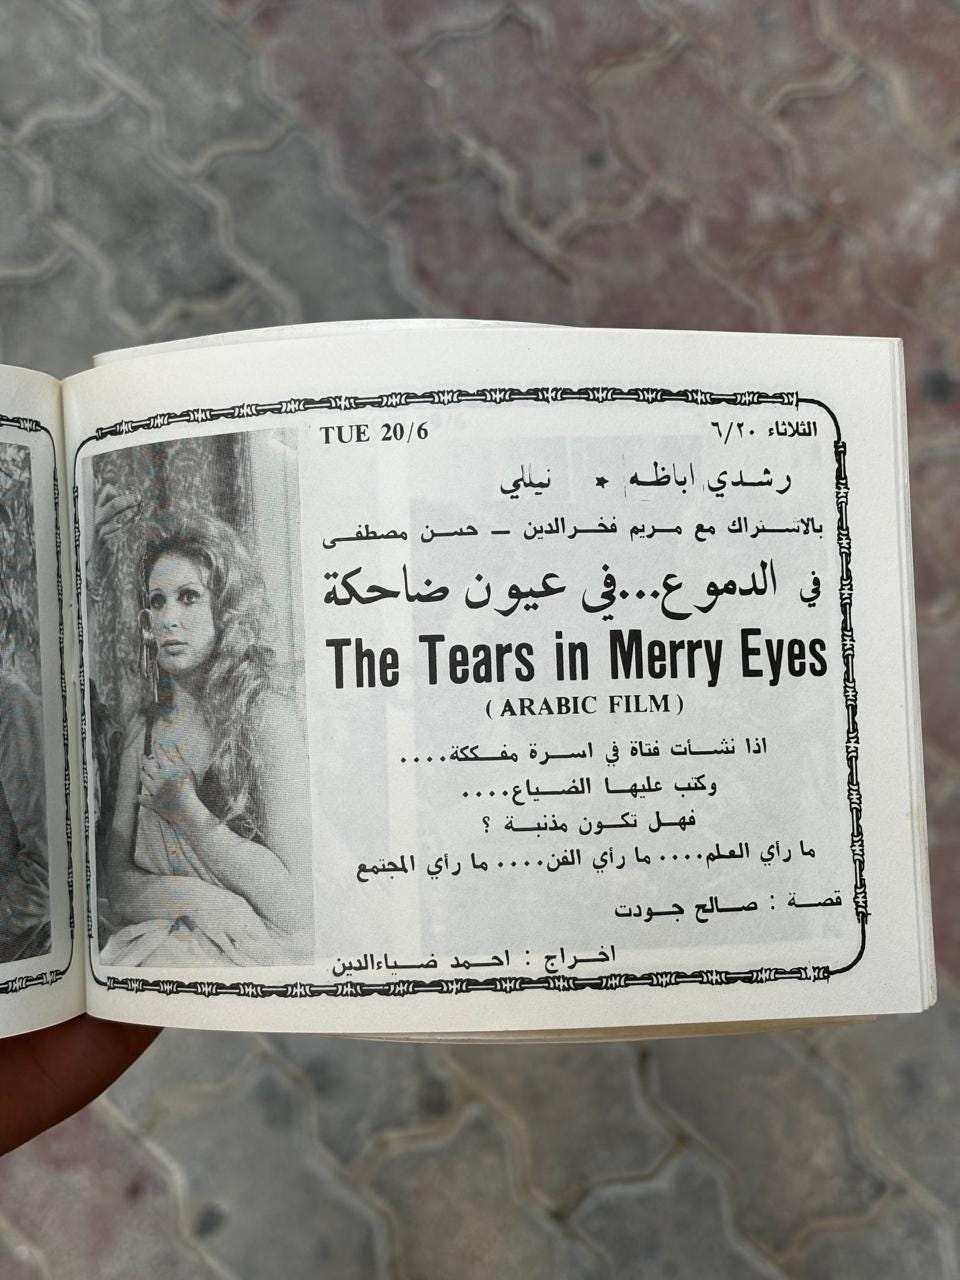 TUE 20/6
الثلاثاء ٦/٢٠
رشدي اباظه ★ نيللي
بالاشتراك مع مريم فخرالدين — حسن مصطفى
في الدموع...في عيون ضاحكة
The Tears in Merry Eyes
(ARABIC FILM)
اذا نشأت فتاة في اسرة مفككة....
وكتب عليها الضياع....
فهل تكون مذنبة ؟
ما رأي العلم.... ما رأي الفن.... ما رأي المجتمع
قصة : صالح جودت
اخراج : احمد ضياءالدين